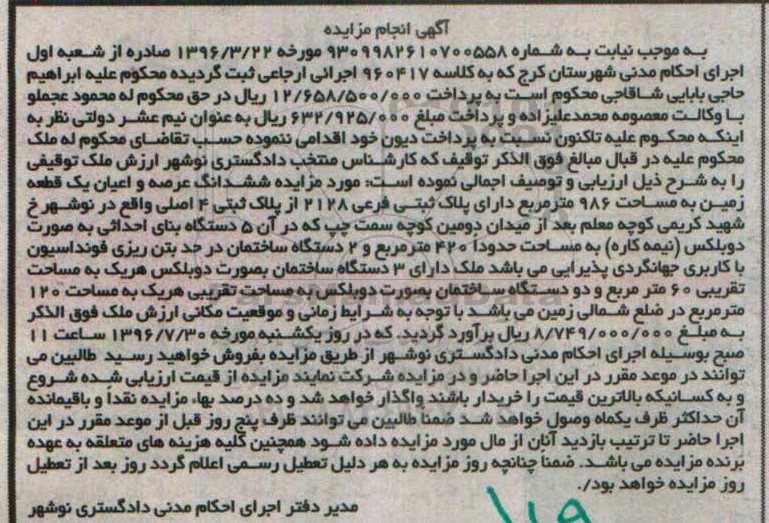 آگهی انجام مزایده
به موجب نیابت به شماره ۹۳۰۹۹۸۲۶۱۰۷۰۰۵۵۸ مورخه ۱۳۹۶/۳/۲۲ صادره از شعبه اول
اجرای احکام مدنی شهرستان کرج که به کلاسه ۹۶۰۴۱۷ اجرائی ارجاعی ثبت گردیده محکوم علیه ابراهیم
حاجی بابایی شاقاجی محکوم است به پرداخت ۱۲/۶۵۸/۵۰۰/۰۰۰ ریال در حق محکوم له محمود عجملو
با وکالت معصومه محمدعلیزاده و پرداخت مبلغ ۶۳۲/۹۲۵/۰۰۰ ریال به عنوان نیم عشر دولتی نظر به
اینکه محکوم علیه تاکنون نسبت به پرداخت دیون خود اقدامی ننموده حسب تقاضای محکوم له ملک
محکوم علیه در قبال مبالغ فوق الذکر توقیف که کارشناس منتخب دادگستری نوشهر ارزش ملک توقیفی
را به شرح ذیل ارزیابی و توصیف اجمالی نموده است: مورد مزایده ششدانگ عرصه و اعیان یک قطعه
زمین به مساحت ۹۸۶ مترمربع دارای پلاک ثبتی فرعی ۲۱۲۸ از پلاک ثبتی ۴ اصلی واقع در نوشهر خ
شهید کریمی کوچه معلم بعد از میدان دومین کوچه سمت چپ که در آن ۵ دستگاه بنای احداثی به صورت
دوبلکس (نیمه کاره) به مساحت حدودا ۴۲۰ مترمربع و ۲ دستگاه ساختمان در حد بتن ریزی فونداسیون
با کاربری جهانگردی پذیرایی می باشد ملک دارای ۳ دستگاه ساختمان بصورت دوبلکس هریک به مساحت
تقریبی ۶۰ متر مربع و دو دستگاه ساختمان بصورت دوبلکس به مساحت تقریبی هریک به مساحت ۱۲۰
مترمربع در ضلع شمالی زمین می باشد با توجه به شرایط زمانی و موقعیت مکانی ارزش ملک فوق الذکر
به مبلغ ۸/۷۴۹/۰۰۰/۰۰۰ ریال برآورد گردید. که در روز یکشنبه مورخه ۱۳۹۶/۷/۳۰ ساعت ۱۱
صبح بوسیله اجرای احکام مدنی دادگستری نوشهر از طریق مزایده بفروش خواهید رسید طالبین می
توانند در موعد مقرر در این اجرا حاضر و در مزایده شرکت نمایند مزایده از قیمت ارزیابی شده شروع
و به کسانیکه بالاترین قیمت را خریدار باشند واگذار خواهد شد و ده درصد بهاء مزایده نقداً و باقیمانده
آن حداکثر ظرف یکماه وصول خواهد شد ضمنا طالبین می توانند ظرف پنج روز قبل از موعد مقرر در این
اجرا حاضر تا ترتیب بازدید آنان از مال مورد مزایده داده شود همچنین کلیه هزینه های متعلقه به عهده
برنده مزایده می باشد. ضمناً چنانچه روز مزایده به هر دلیل تعطیل رسمی اعلام گردد روز بعد از تعطیل
روز مزایده خواهد بود./
مدیر دفتر اجرای احکام مدنی دادگستری نوشهر